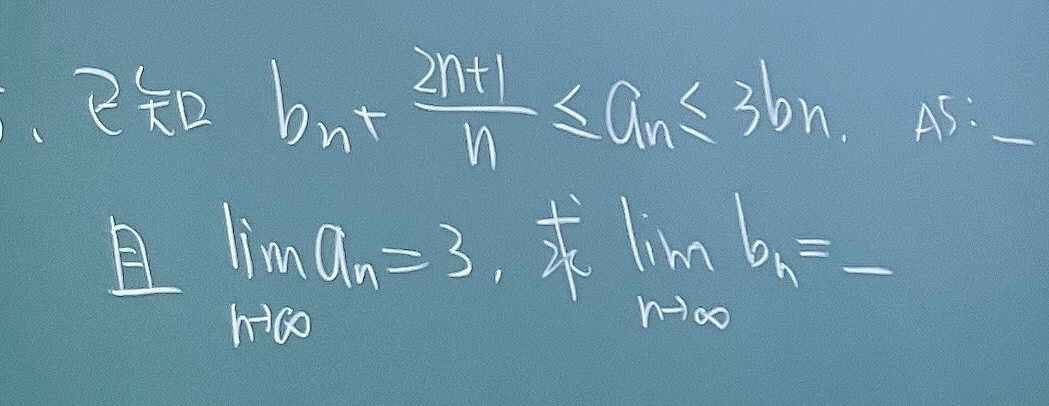 、已知 bn+ (2n+1)/n ≤ an ≤ 3bn. AS: _
且 lim n→∞ an = 3, 求 lim n→∞ bn = _